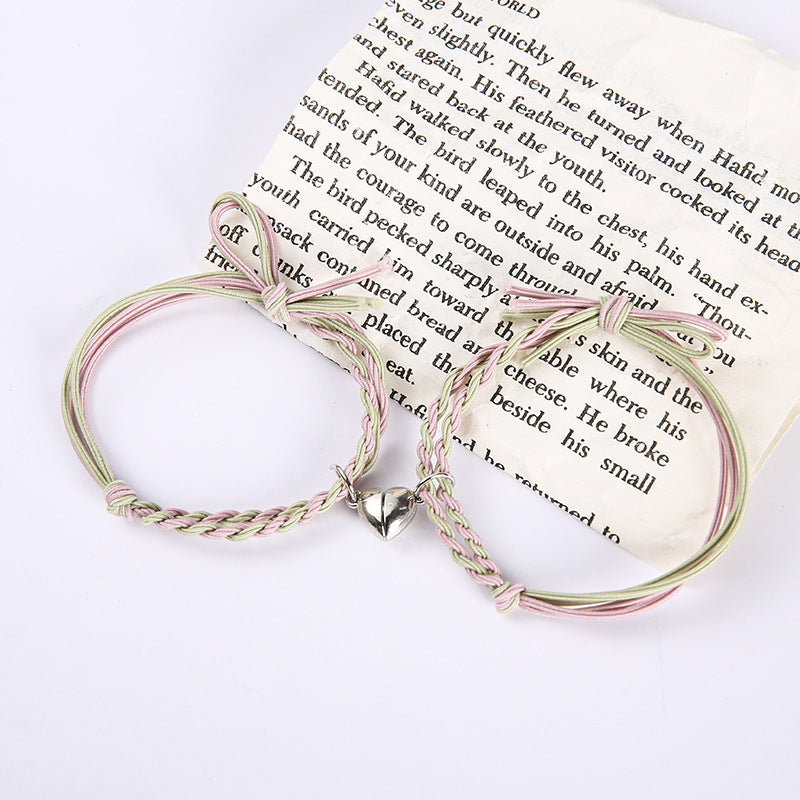 ORLD
ge but quickly flew away when Hafid mo
even slightly. Then he turned and looked at th
chest again. His feathered visitor cocked its head
and stared back at the youth.
Hafid walked slowly to the chest, his hand ex-
tended. The bird leaped into his palm. “Thou-
sands of your kind are outside and afraid you
had the courage to come through
The bird pecked sharply a 's skin and the
youth carried him toward the table where his
psack contained bread and cheese. He broke
off chunks placed the beside his small
frie eat.
Hafi nd he returned to